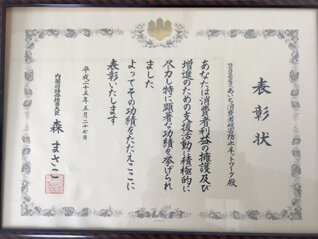 表彰状
特定非営利活動法人あいち消費者被害防止ネットワーク殿
あなたは消費者利益の擁護及び
増進のための支援活動に積極的に
尽力し特に顕著な功績を挙げられ
ました
よってその功績をたたえここに
表彰いたします
平成二十五年五月二十七日
内閣府特命担当大臣
森まさこ